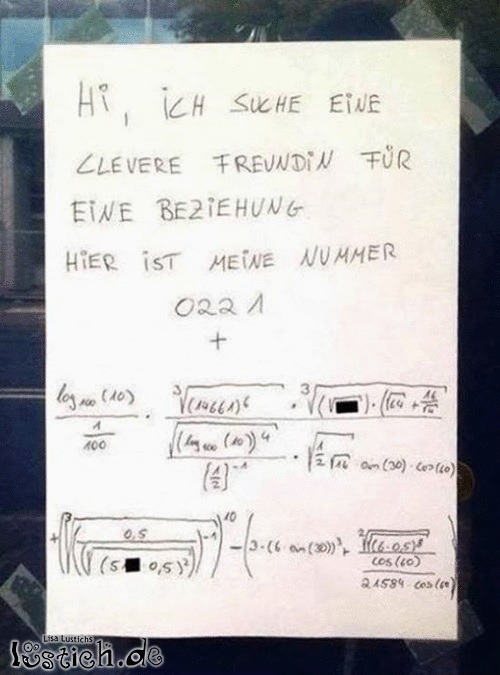 Hi, ICH SUCHE EINE
CLEVERE FREUNDIN FÜR
EINE BEZIEHUNG
HIER IST MEINE NUMMER
0221
+
log₁₀₀(10) / (1/100) · ∛(14661)⁶ · ∛(√█) · (√64 + 16/√4)
√(log₁₀₀(10))⁴ / [1/2]⁻¹ · √(1/2 √16) · sin(30) · cos(60)
+ (∛(0,5 / √(5█ 0,5)²)⁻¹)¹⁰ − (3·(6·sin(30))³ + ²√(6·0,5)⁸ / cos(60) / 21584·cos(60))
Lisa Lustichs
lustich.de